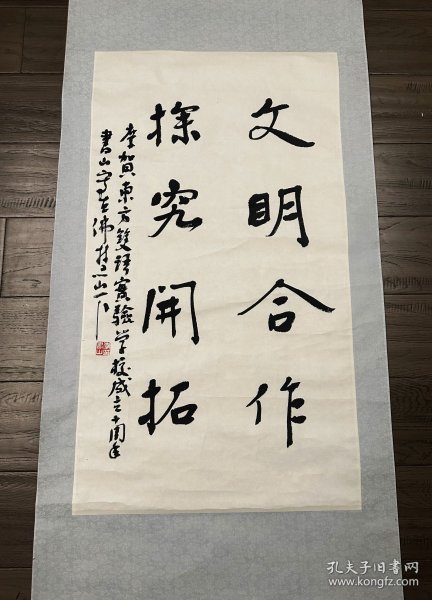 文明合作
探究開拓
奉賀東方雙語實驗学校成立十周年
書山寫於佛村
孔夫子旧书网
www.kongfz.com